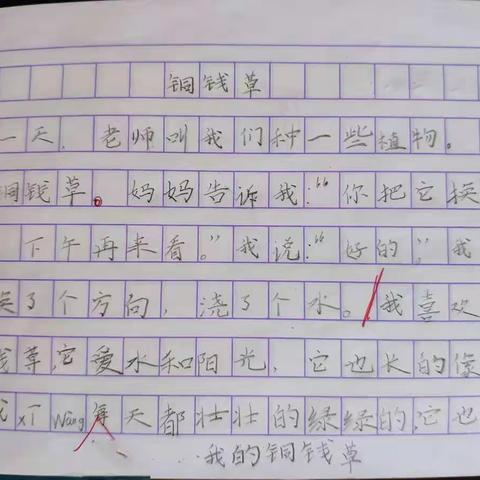 铜钱草
一天，老师叫我们种一些植物。
铜钱草。妈妈告诉我：“你把它换
下午再来看。”我说：“好的。”我
了个方向，浇了个水。我喜欢
它爱水和阳光，它也长的像
xī wàng每天都壮壮的绿绿的，它也
我的铜钱草